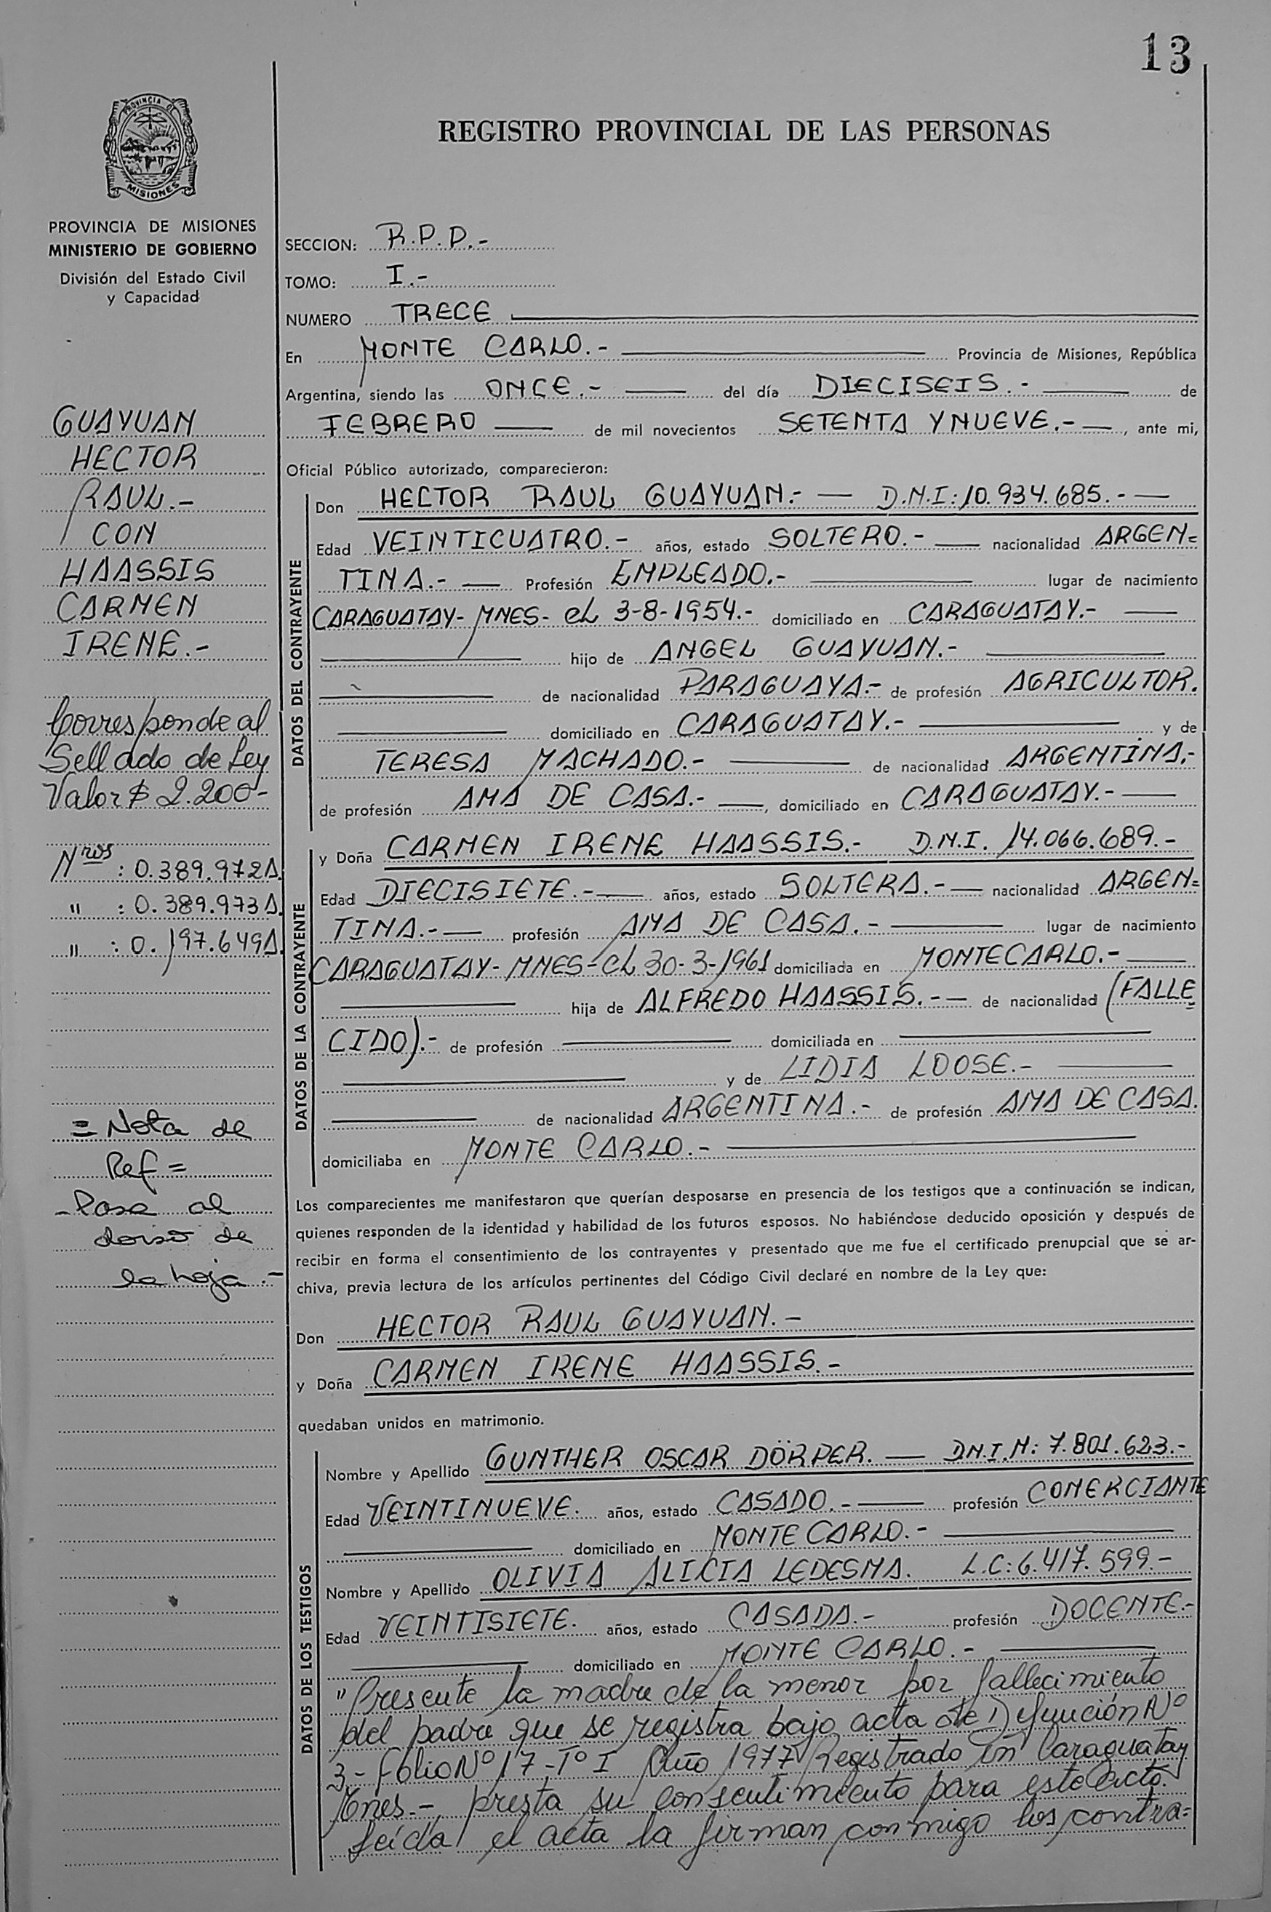 13
PROVINCIA DE
MISIONES
REGISTRO PROVINCIAL DE LAS PERSONAS
PROVINCIA DE MISIONES
MINISTERIO DE GOBIERNO
División del Estado Civil
y Capacidad
GUAYUAN
HECTOR
RAUL.-
CON
HAASSIS
CARMEN
IRENE.-
Corresponde al
Sellado de Ley
Valor $ 2.200-
Nros : 0.389.972A.
" : 0.389.973A.
" : 0.197.649A.
= Nota de
Ref =
- Pasa al
dorso de
la hoja.-
SECCION: R.P.D.-
TOMO: I.-
NUMERO TRECE
En MONTE CARLO.- Provincia de Misiones, República
Argentina, siendo las ONCE.- del día DIECISEIS.- de
FEBRERO de mil novecientos SETENTA Y NUEVE.-, ante mi,
Oficial Público autorizado, comparecieron:
DATOS DEL CONTRAYENTE
Don HECTOR RAUL GUAYUAN.- D.N.I: 10.934.685.-
Edad VEINTICUATRO.- años, estado SOLTERO.- nacionalidad ARGEN=
TINA.- Profesión EMPLEADO.- lugar de nacimiento
CARAGUATAY- MNES- el 3-8-1954.- domiciliado en CARAGUATAY.-
hijo de ANGEL GUAYUAN.-
de nacionalidad PARAGUAYA.- de profesión AGRICULTOR.
domiciliado en CARAGUATAY.- y de
TERESA MACHADO.- de nacionalidad ARGENTINA.-
de profesión AMA DE CASA.-, domiciliado en CARAGUATAY.-
DATOS DE LA CONTRAYENTE
y Doña CARMEN IRENE HAASSIS.- D.N.I. 14.066.689.-
Edad DIECISIETE.- años, estado SOLTERA.- nacionalidad ARGEN=
TINA.- profesión AMA DE CASA.- lugar de nacimiento
CARAGUATAY- MNES- el 30-3-1961 domiciliada en MONTECARLO.-
hija de ALFREDO HAASSIS.- de nacionalidad (FALLE
CIDO).- de profesión domiciliada en
y de LIDIA LOOSE.-
de nacionalidad ARGENTINA.- de profesión AMA DE CASA.
domiciliaba en MONTE CARLO.-
Los comparecientes me manifestaron que querían desposarse en presencia de los testigos que a continuación se indican,
quienes responden de la identidad y habilidad de los futuros esposos. No habiéndose deducido oposición y después de
recibir en forma el consentimiento de los contrayentes y presentado que me fue el certificado prenupcial que se ar-
chiva, previa lectura de los artículos pertinentes del Código Civil declaré en nombre de la Ley que:
Don HECTOR RAUL GUAYUAN.-
y Doña CARMEN IRENE HAASSIS.-
quedaban unidos en matrimonio.
DATOS DE LOS TESTIGOS
Nombre y Apellido GUNTHER OSCAR DÖRPER. D.N.I.N: 7.801.623.-
Edad VEINTINUEVE. años, estado CASADO.- profesión COMERCIANTE
domiciliado en MONTE CARLO.-
Nombre y Apellido OLIVIA ALICIA LEDESMA. L.C: 6.417.599.-
Edad VEINTISIETE. años, estado CASADA.- profesión DOCENTE.-
domiciliado en MONTE CARLO.-
"Presente la madre de la menor por fallecimiento
del padre que se registra bajo acta de Defunción Nº
3- Folio Nº 17-Tº I Año 1977 Registrado en Caraguatay
Mnes.-, presta su consentimiento para este acto.
Leída el acta la firman conmigo los contra=